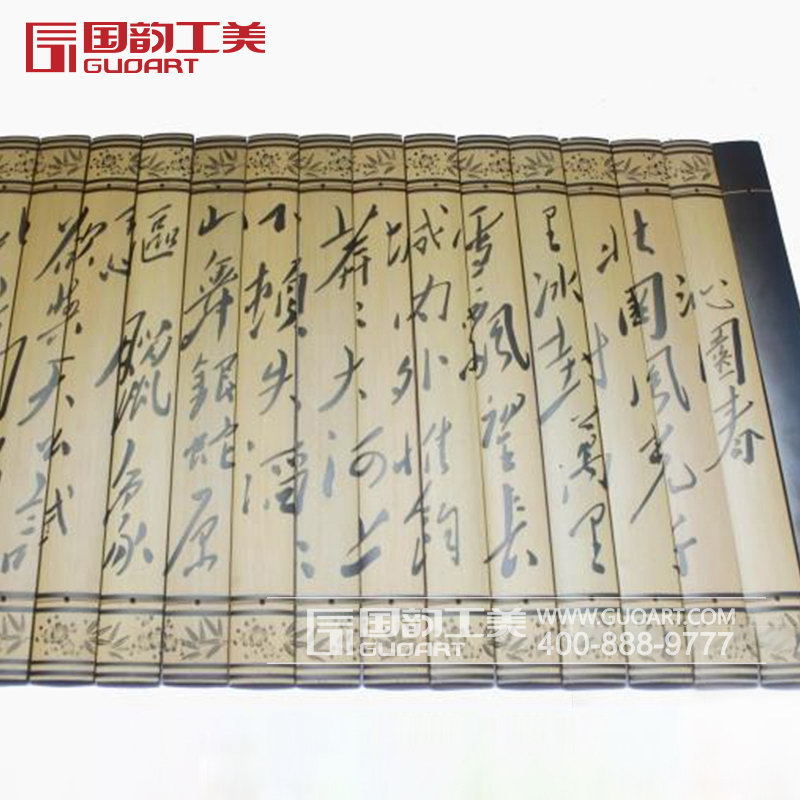 国韵工美
GUOART
沁園春
北國風光千
里冰封萬里
雪飄望長
城内外惟餘
莽〻大河上
下頓失滔〻
山舞銀蛇原
驅蠟象
欲與天公試
国韵工美
GUOART
WWW.GUOART.COM
400-888-9777